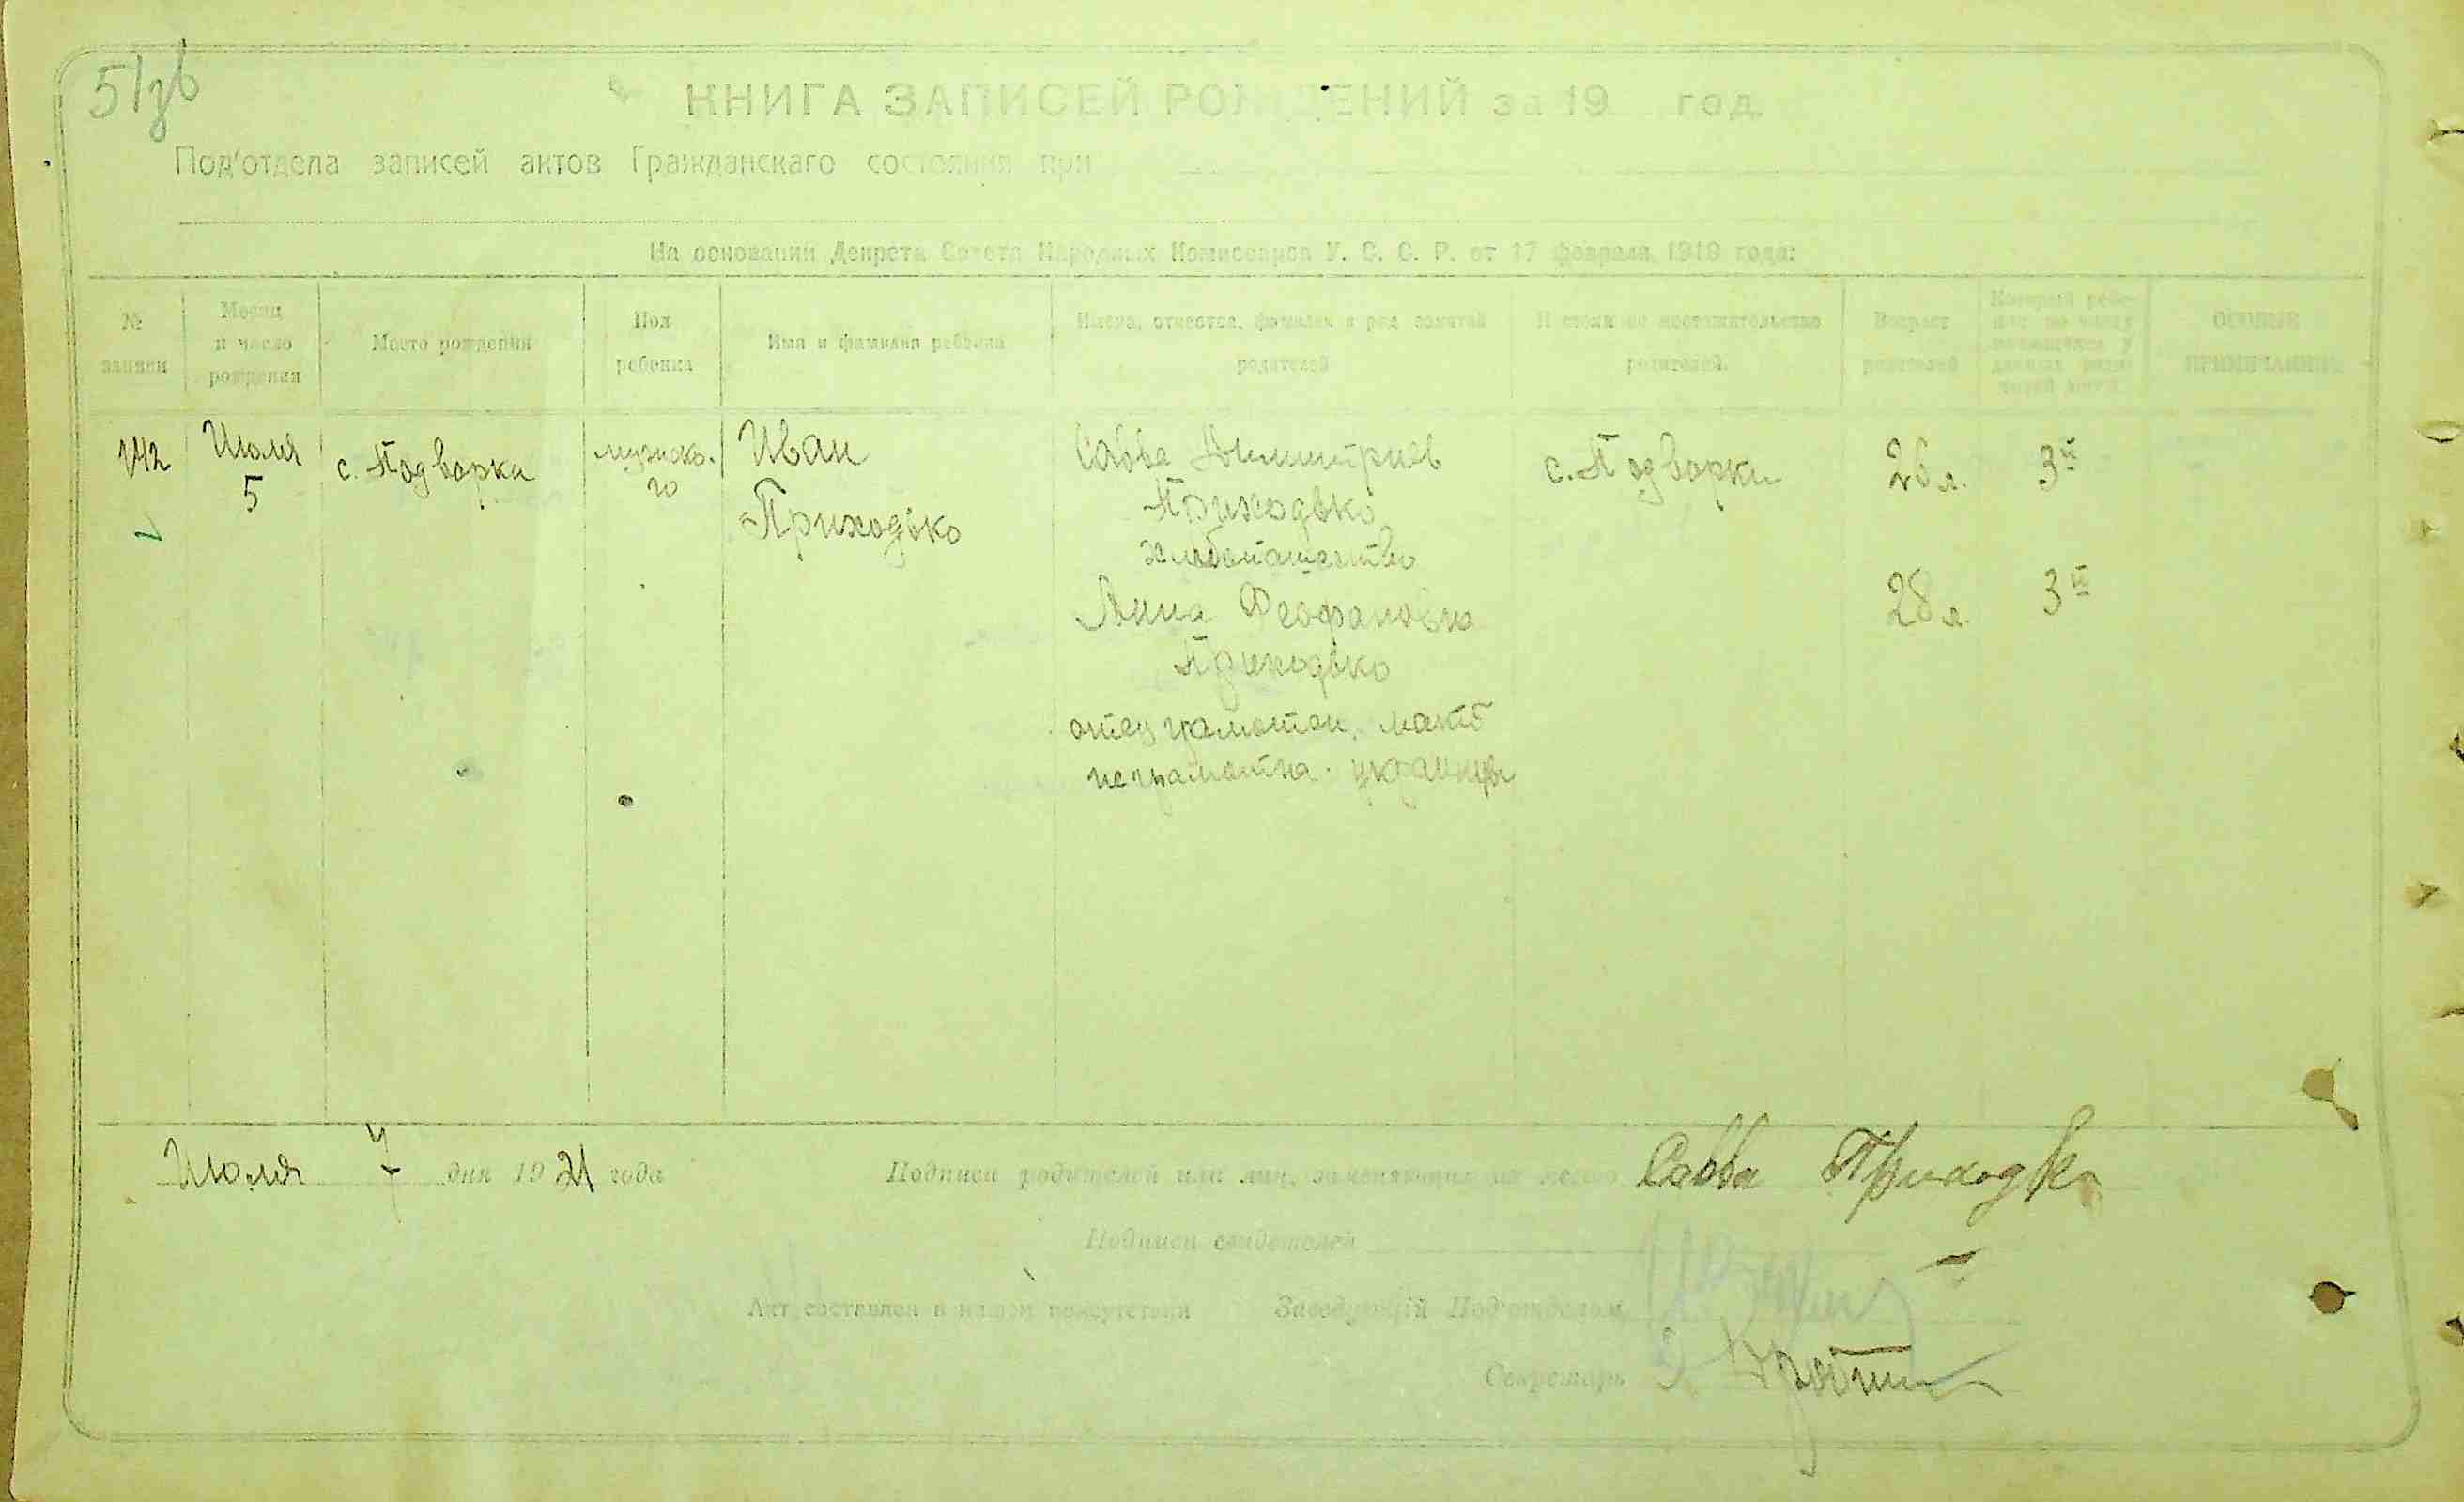 51зв
КНИГА ЗАПИСЕЙ РОЖДЕНИЙ за 19 год
Под'отдела записей актов Гражданскаго состояния при
На основании Декрета Совета Народных Комиссаров У. С. С. Р. от 17 февраля 1919 года:
№ записи
Месяц и число рождения
Место рождения
Пол ребенка
Имя и фамилия ребенка
Имена, отчества, фамилия и род занятий родителей
Постоянное местожительство родителей.
Возраст родителей
ОСОБЫЕ ПРИМЕЧАНИЯ
142
Июля 5
с. Подворки
мужско-
го
Иван
Приходько
Савва Димитриев
Приходько
хлебопашество
Анна Феофановна
Приходько
отец грамотен, мать
неграмотна. украинцы
с. Подворки
26 л.
3й
28 л.
3й
Июля 7 дня 1921 года
Подписи родителей или лиц, заменяющих их место Савва Приходько
Подписи свидетелей
Акт составлен в нашем присутствии Заведующий Под'отделом
Секретарь